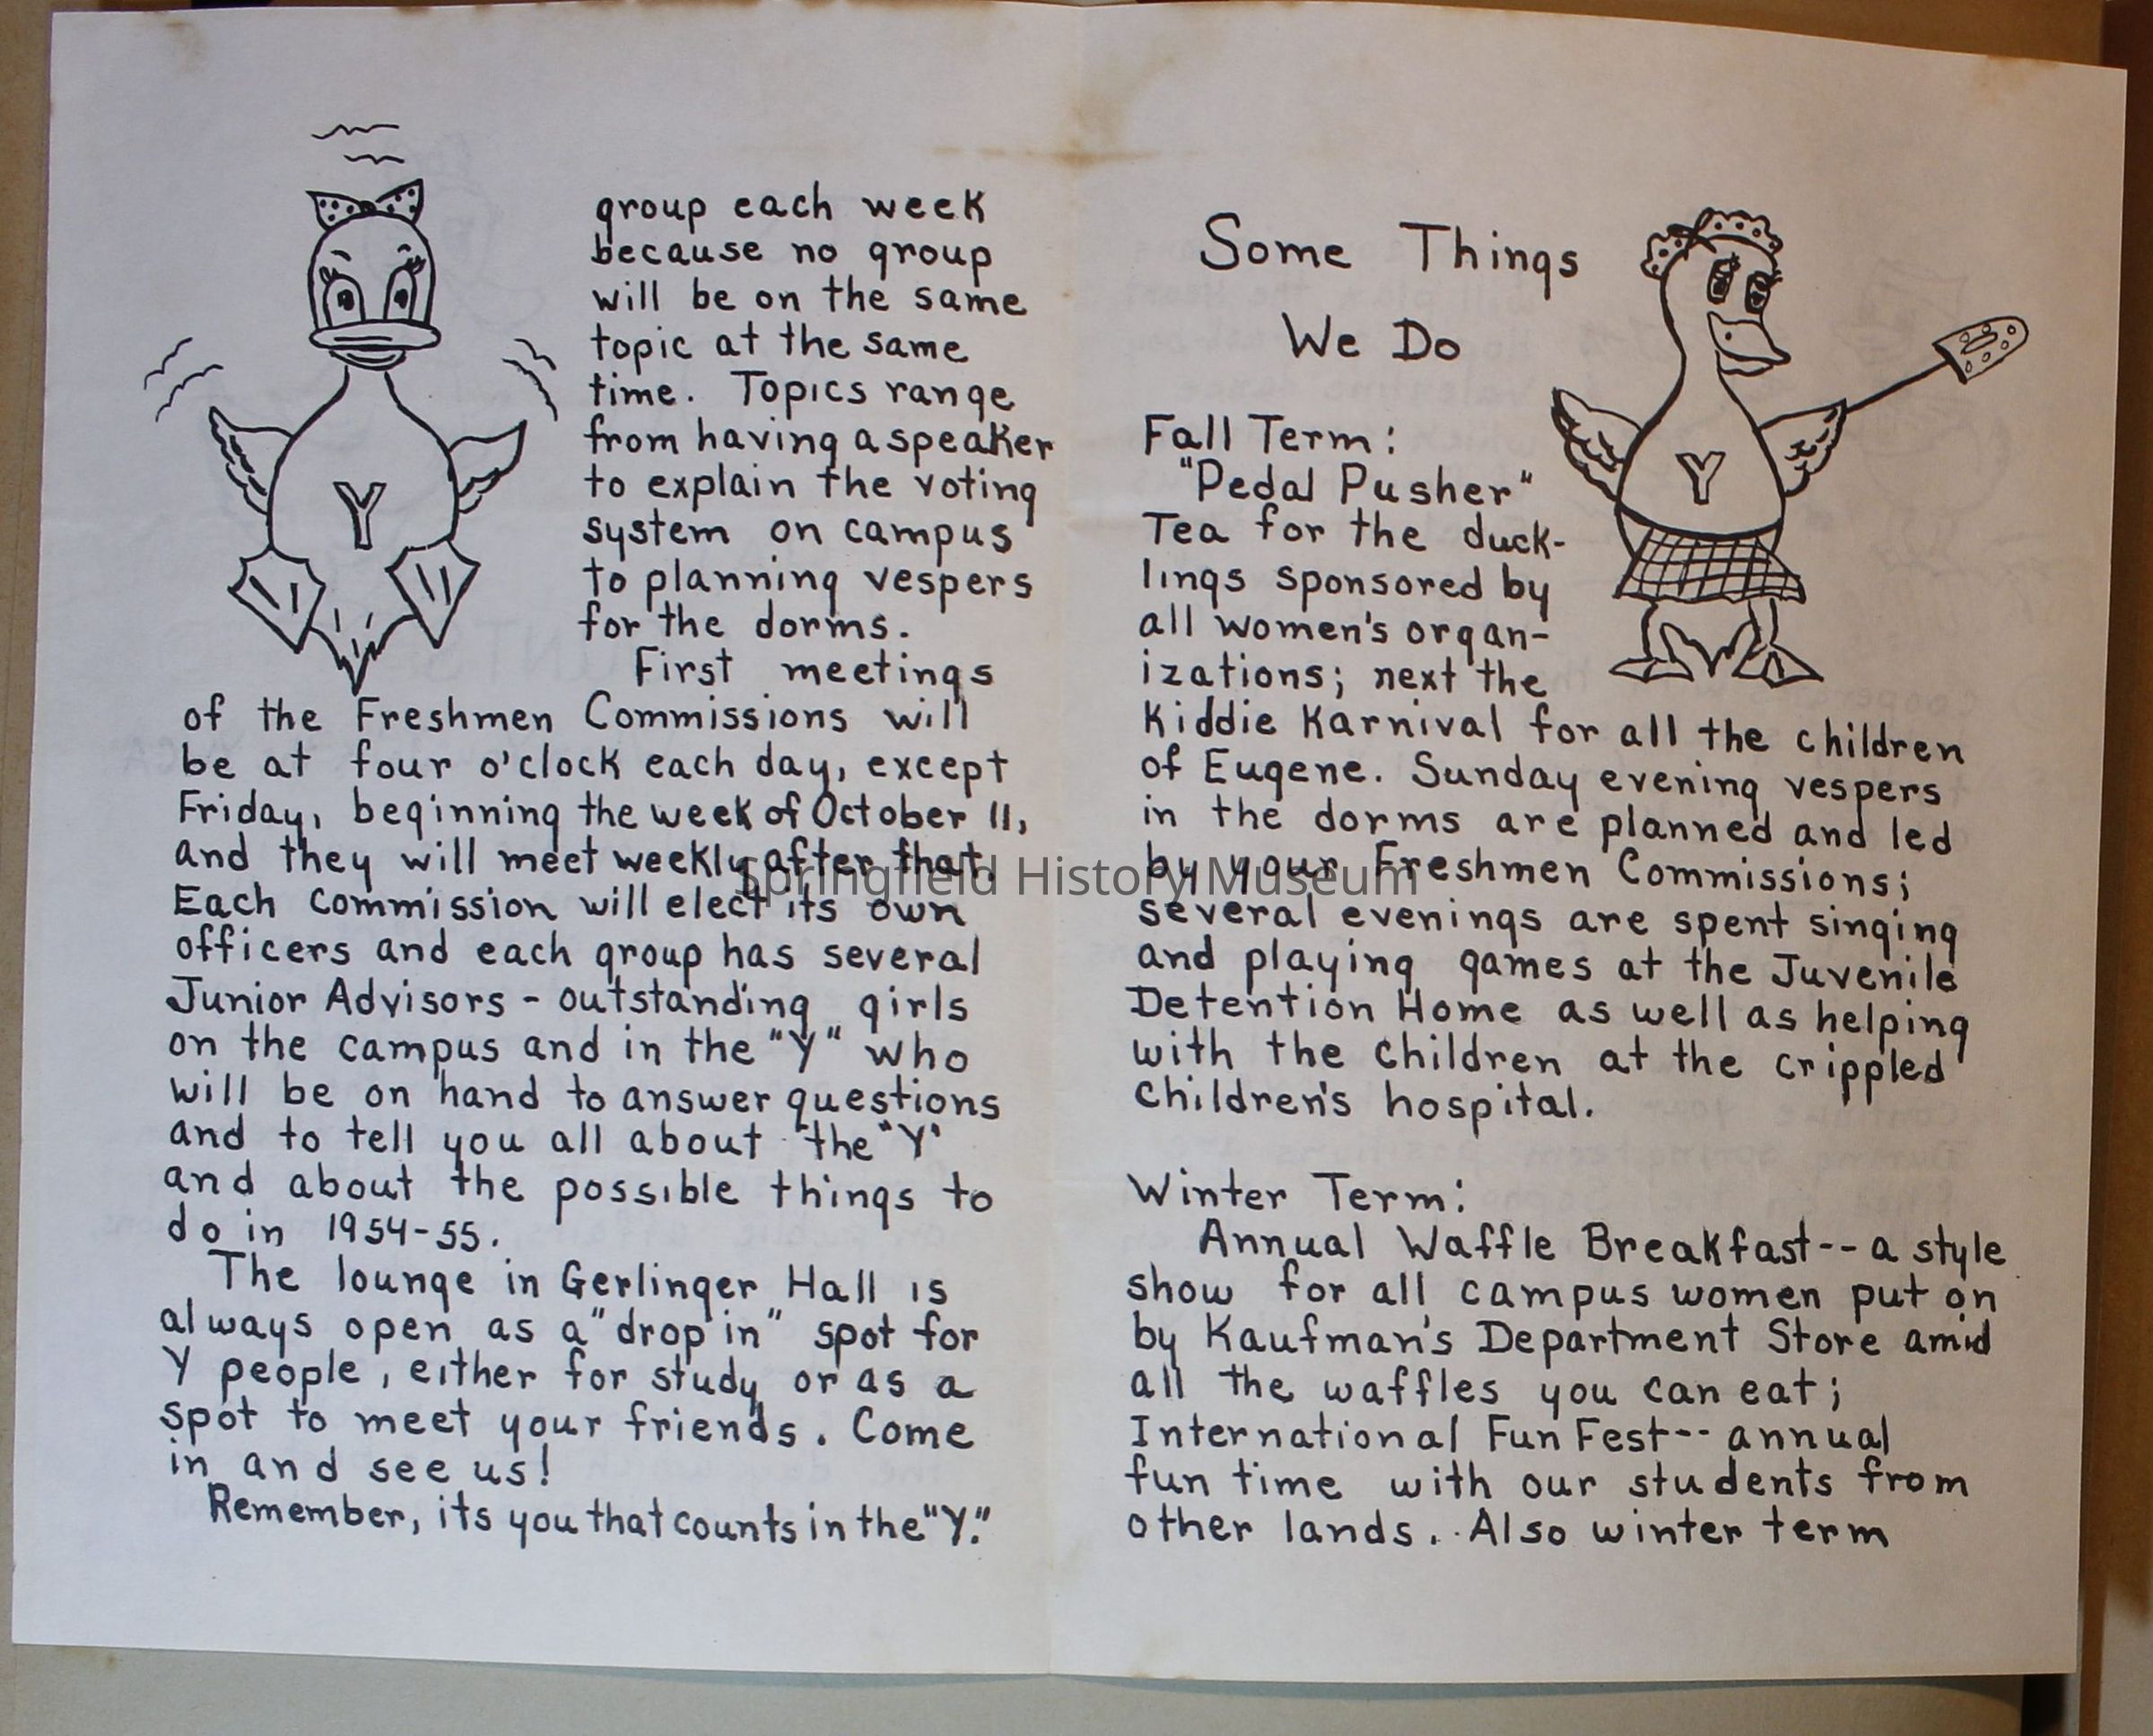 group each week
because no group
will be on the same
topic at the same
time. Topics range
from having a speaker
to explain the voting
system on campus
to planning vespers
for the dorms.
First meetings
of the Freshmen Commissions will
be at four o'clock each day, except
Friday, beginning the week of October 11,
and they will meet weekly after that.
Each commission will elect its own
officers and each group has several
Junior Advisors - outstanding girls
on the campus and in the "Y" who
will be on hand to answer questions
and to tell you all about the "Y"
and about the possible things to
do in 1954-55.
The lounge in Gerlinger Hall is
always open as a "drop in" spot for
Y people, either for study or as a
spot to meet your friends. Come
in and see us!
Remember, its you that counts in the "Y."
Y
Some Things
We Do
Y
Fall Term:
"Pedal Pusher"
Tea for the duck-
lings sponsored by
all women's organ-
izations; next the
Kiddie Karnival for all the children
of Eugene. Sunday evening vespers
in the dorms are planned and led
by your Freshmen Commissions;
several evenings are spent singing
and playing games at the Juvenile
Detention Home as well as helping
with the children at the crippled
children's hospital.
Winter Term:
Annual Waffle Breakfast-- a style
show for all campus women put on
by Kaufman's Department Store amid
all the waffles you can eat;
International Fun Fest-- annual
fun time with our students from
other lands. Also winter term
Springfield History Museum